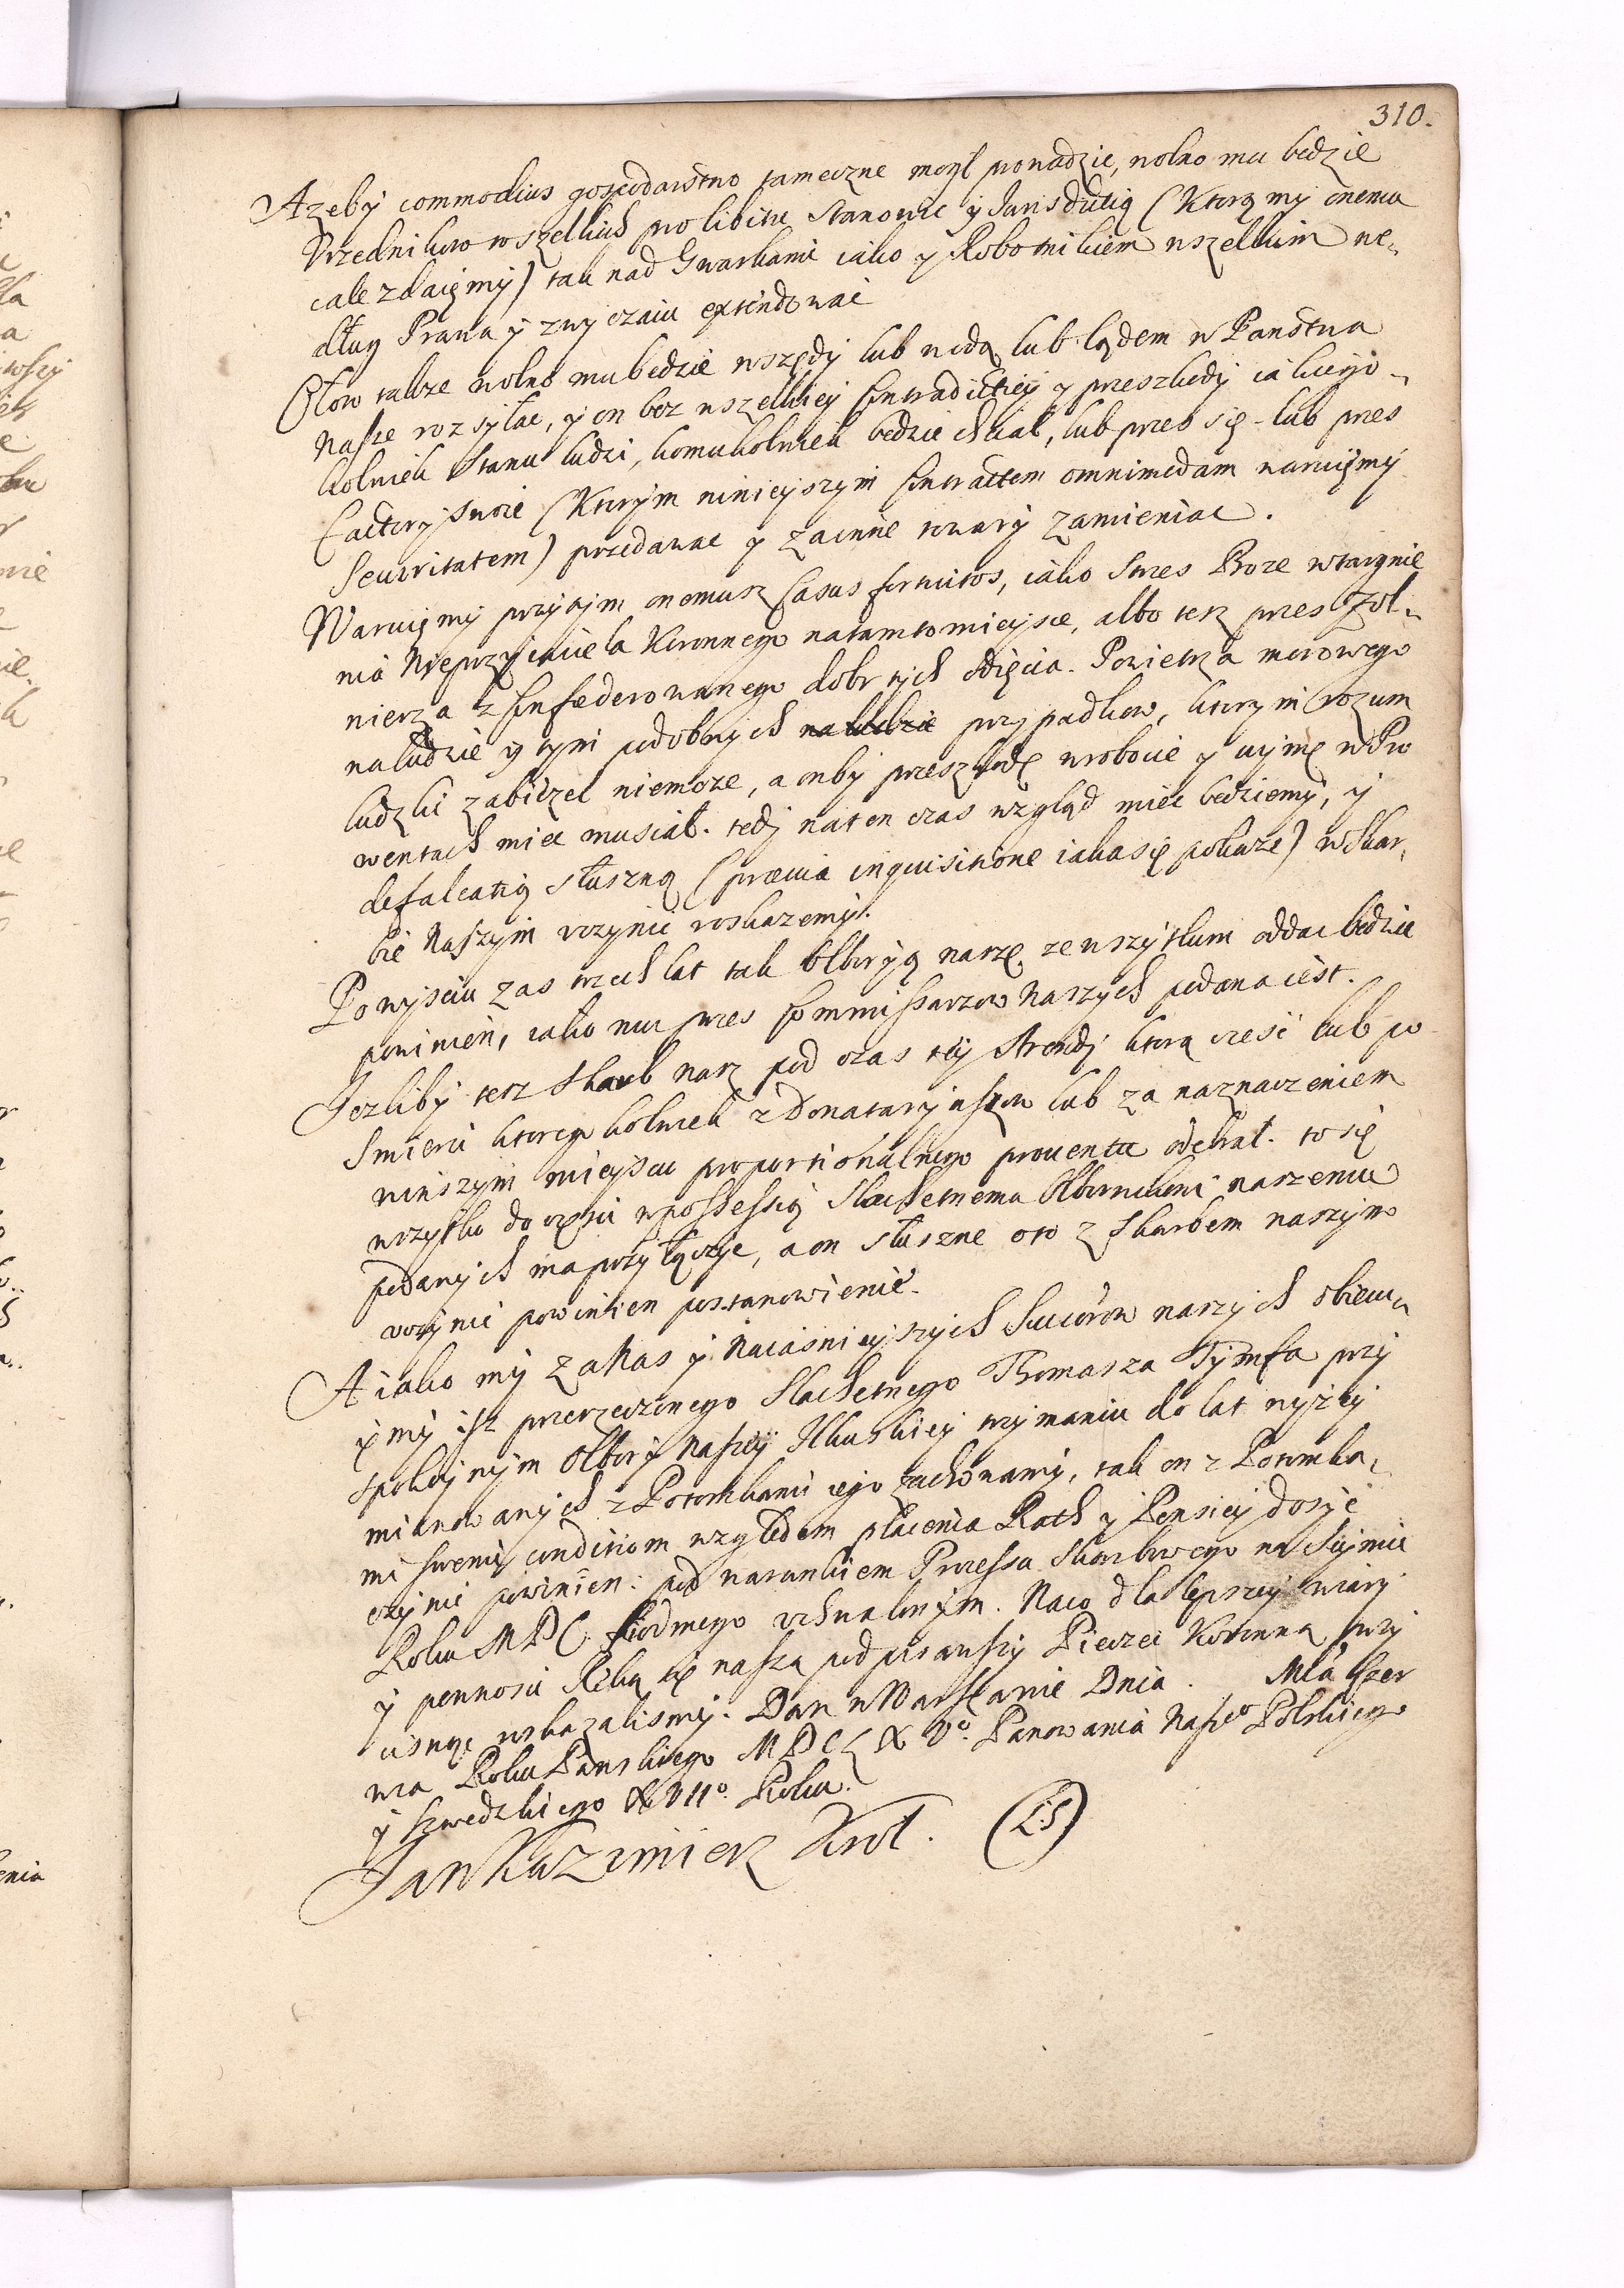 310.
Azeby commodius gospodarstwo tameczne mogł prowadzic, wolno mu bedzie
Vrzednikow wszelkich pro libitu stanowic y Jurisdictią (Ktorą my onemu
cale zdaięmy) tak nad Gwarkami iako y Robotnikiem wszelkim we¬
dług Prawa y zwyczaiu extendowac
Ołow takze wolno mu bedzie wszędy lub wodą lub lądem w Panstwa
Nasze rozsyłac, y on bez wszelkiey Contradictiey y przeszkody iakiegio¬
kolwiek stanu ludzi, komukolwiek bedzie chciał, lub przes się lub przes
Factory swoie (Ktorym ninieyszym Contractem omnimodam waruięmy
Securitatem) przedawac y za inne towary zamieniac.
Waruięmy przytym onemusz Casus fortuitos, iako strzes Boze wtargnie
nia Nieprzyiaciela Koronnego na tamto mieysce, albo tesz przes Zoł¬
nierza z Confœderowanego dobr tych odięcia. Powietrza morowego
na ludzie y tym podobnych na ludzie przypadkow, ktorym rozum
ludzki zabiezec niemoze, a onby przeszkodę w robocie y uymę w Pro
wentach miec musiał. tedy naten czas wzgląd miec bedziemy, y
defalcatią słuszną (prœuia inquisitione iaka się pokaze) w Skar¬
bie Naszym uczynic roskazemy.
Po wysciu zas trzech lat tak Olborą naszę ze wszytkim oddac bedzie
powinien, iako mu przes Commissarzow Naszych podana iest.
Jezliby tesz Skarb nasz pod czas tey Arendy ktorą czesc lub po
Smierci ktoregokolwiek z Donataryiuszow lub za naznaczeniem
w inszym mieyscu proportionalnego prouentu odebrał. to się
wszytko do czesci w possessią Slachetnemu Olbornikowi naszemu
podanych ma przyłączyc, a on słuszne oto z skarbem naszym
uczynic powinien postanowienie.
A iako my za Nas y Naiasnieyszych Succesorow naszych obiecu¬
ięmy isz przerzeczonego Slachetnego Thomasza Tymfa przy
spokoynym Olbory Naszey Ilkuskiey trzymaniu do lat wyzey
mianowanych z Potomkami iego zachowamy, tak on z Potomka¬
mi swemi conditiom względem płacenia Rath y Pensiey dosyc
czynic powinien: pod warunkiem Processu Skarbowego na Seymie
Roku MDC. siodmego vchwalonym. Na co dla lepszey wiary
y pewnosci Rękąsię naszą podpisawszy Pieczec Koronną przy
cisnąc roskazalismy. Dan w Warszawie Dnia . Mca Czer
wca Roku Panskiego MDCLXVo. Panowania Naszeo Polskiego
y Szwedzkiego XVIIo. Roku.
Jan Kazimierz Krol. (L.S)